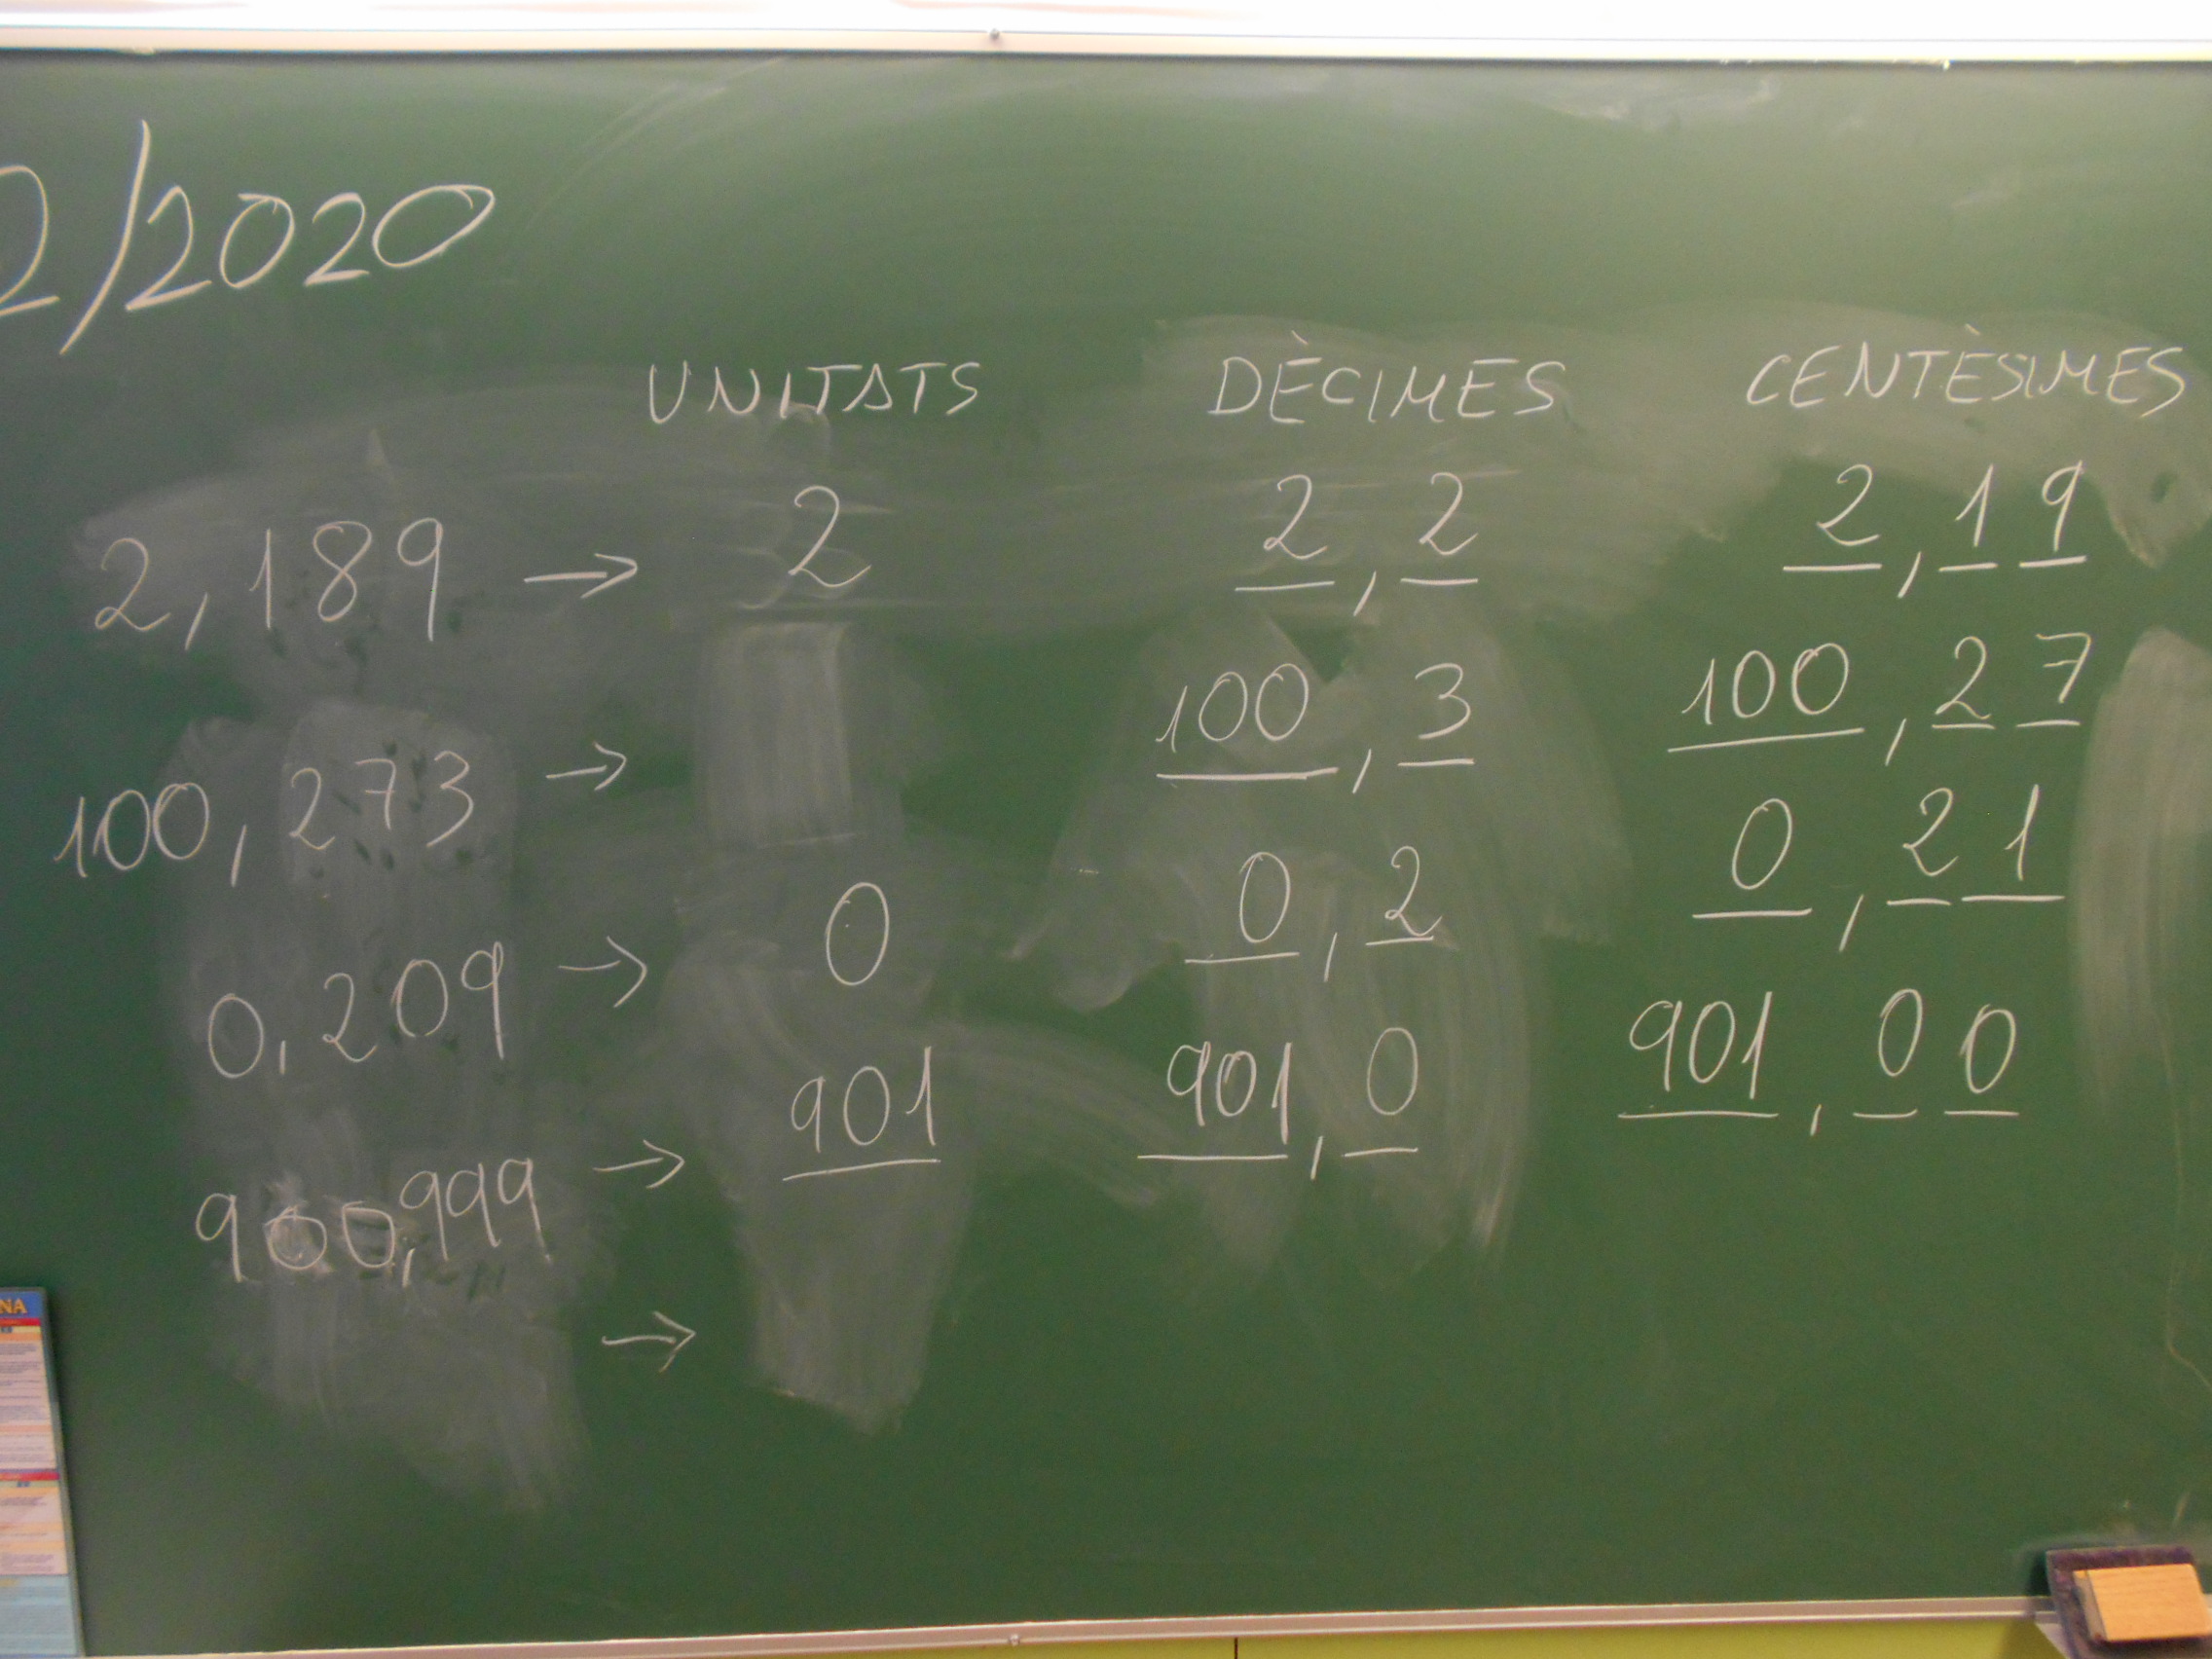 2/2020
UNITATS DÈCIMES CENTÈSIMES
2,189 → 2 2,2 2,19
100,273 → 100,3 100,27
0,209 → 0 0,2 0,21
900,999 → 901 901,0 901,00
→
NA